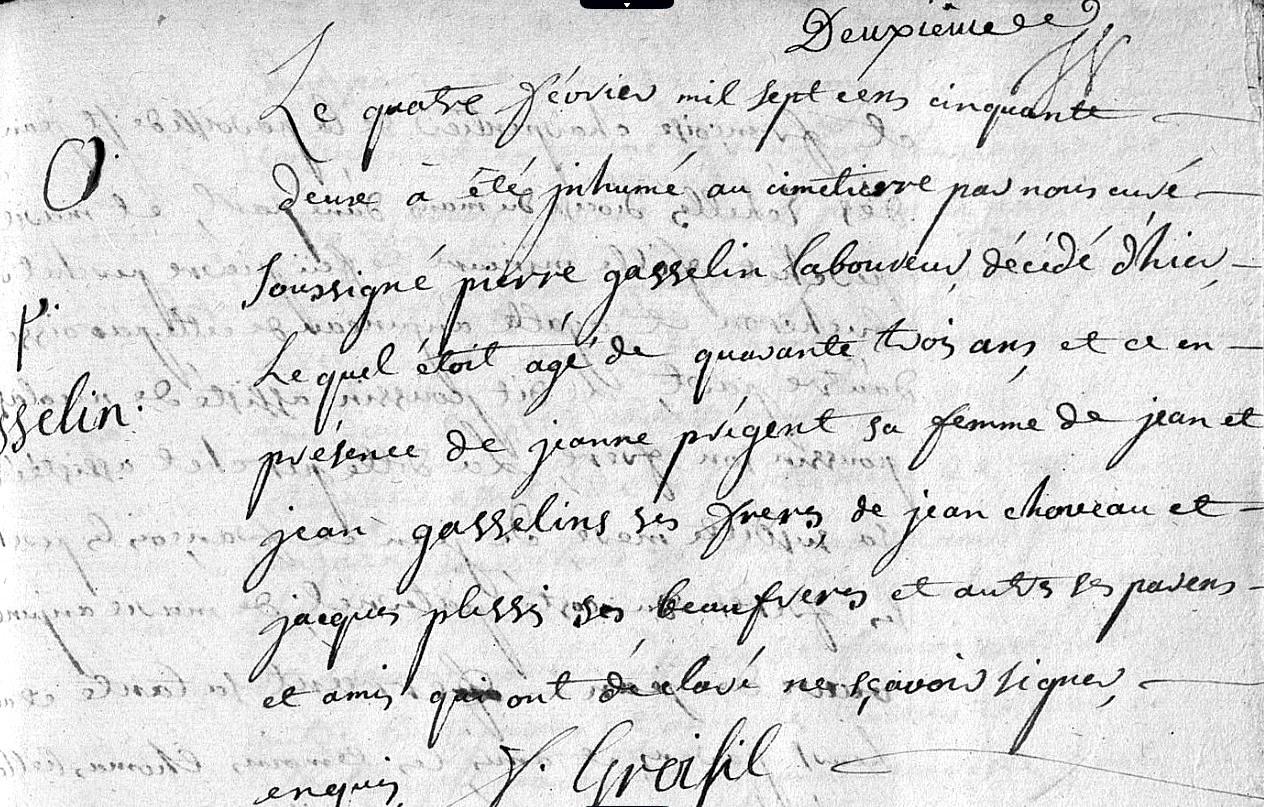 Deuxième de
Le quatre février mil sept cens cinquante
deux à été jnhumé au cimetierre par nous curé
O.
soussigné pierre gasselin laboureur, décédé d'hier,
p.
Lequel étoit agé de quarante trois ans, et ce en
sselin.
présence de jeanne prigent sa femme de jean et
jean gasselins ses freres de jean choveau et
jacques plessis ses beaufreres et autres ses parens
et amis qui ont déclaré ne sçavoir signer,
enquis J. Greisil